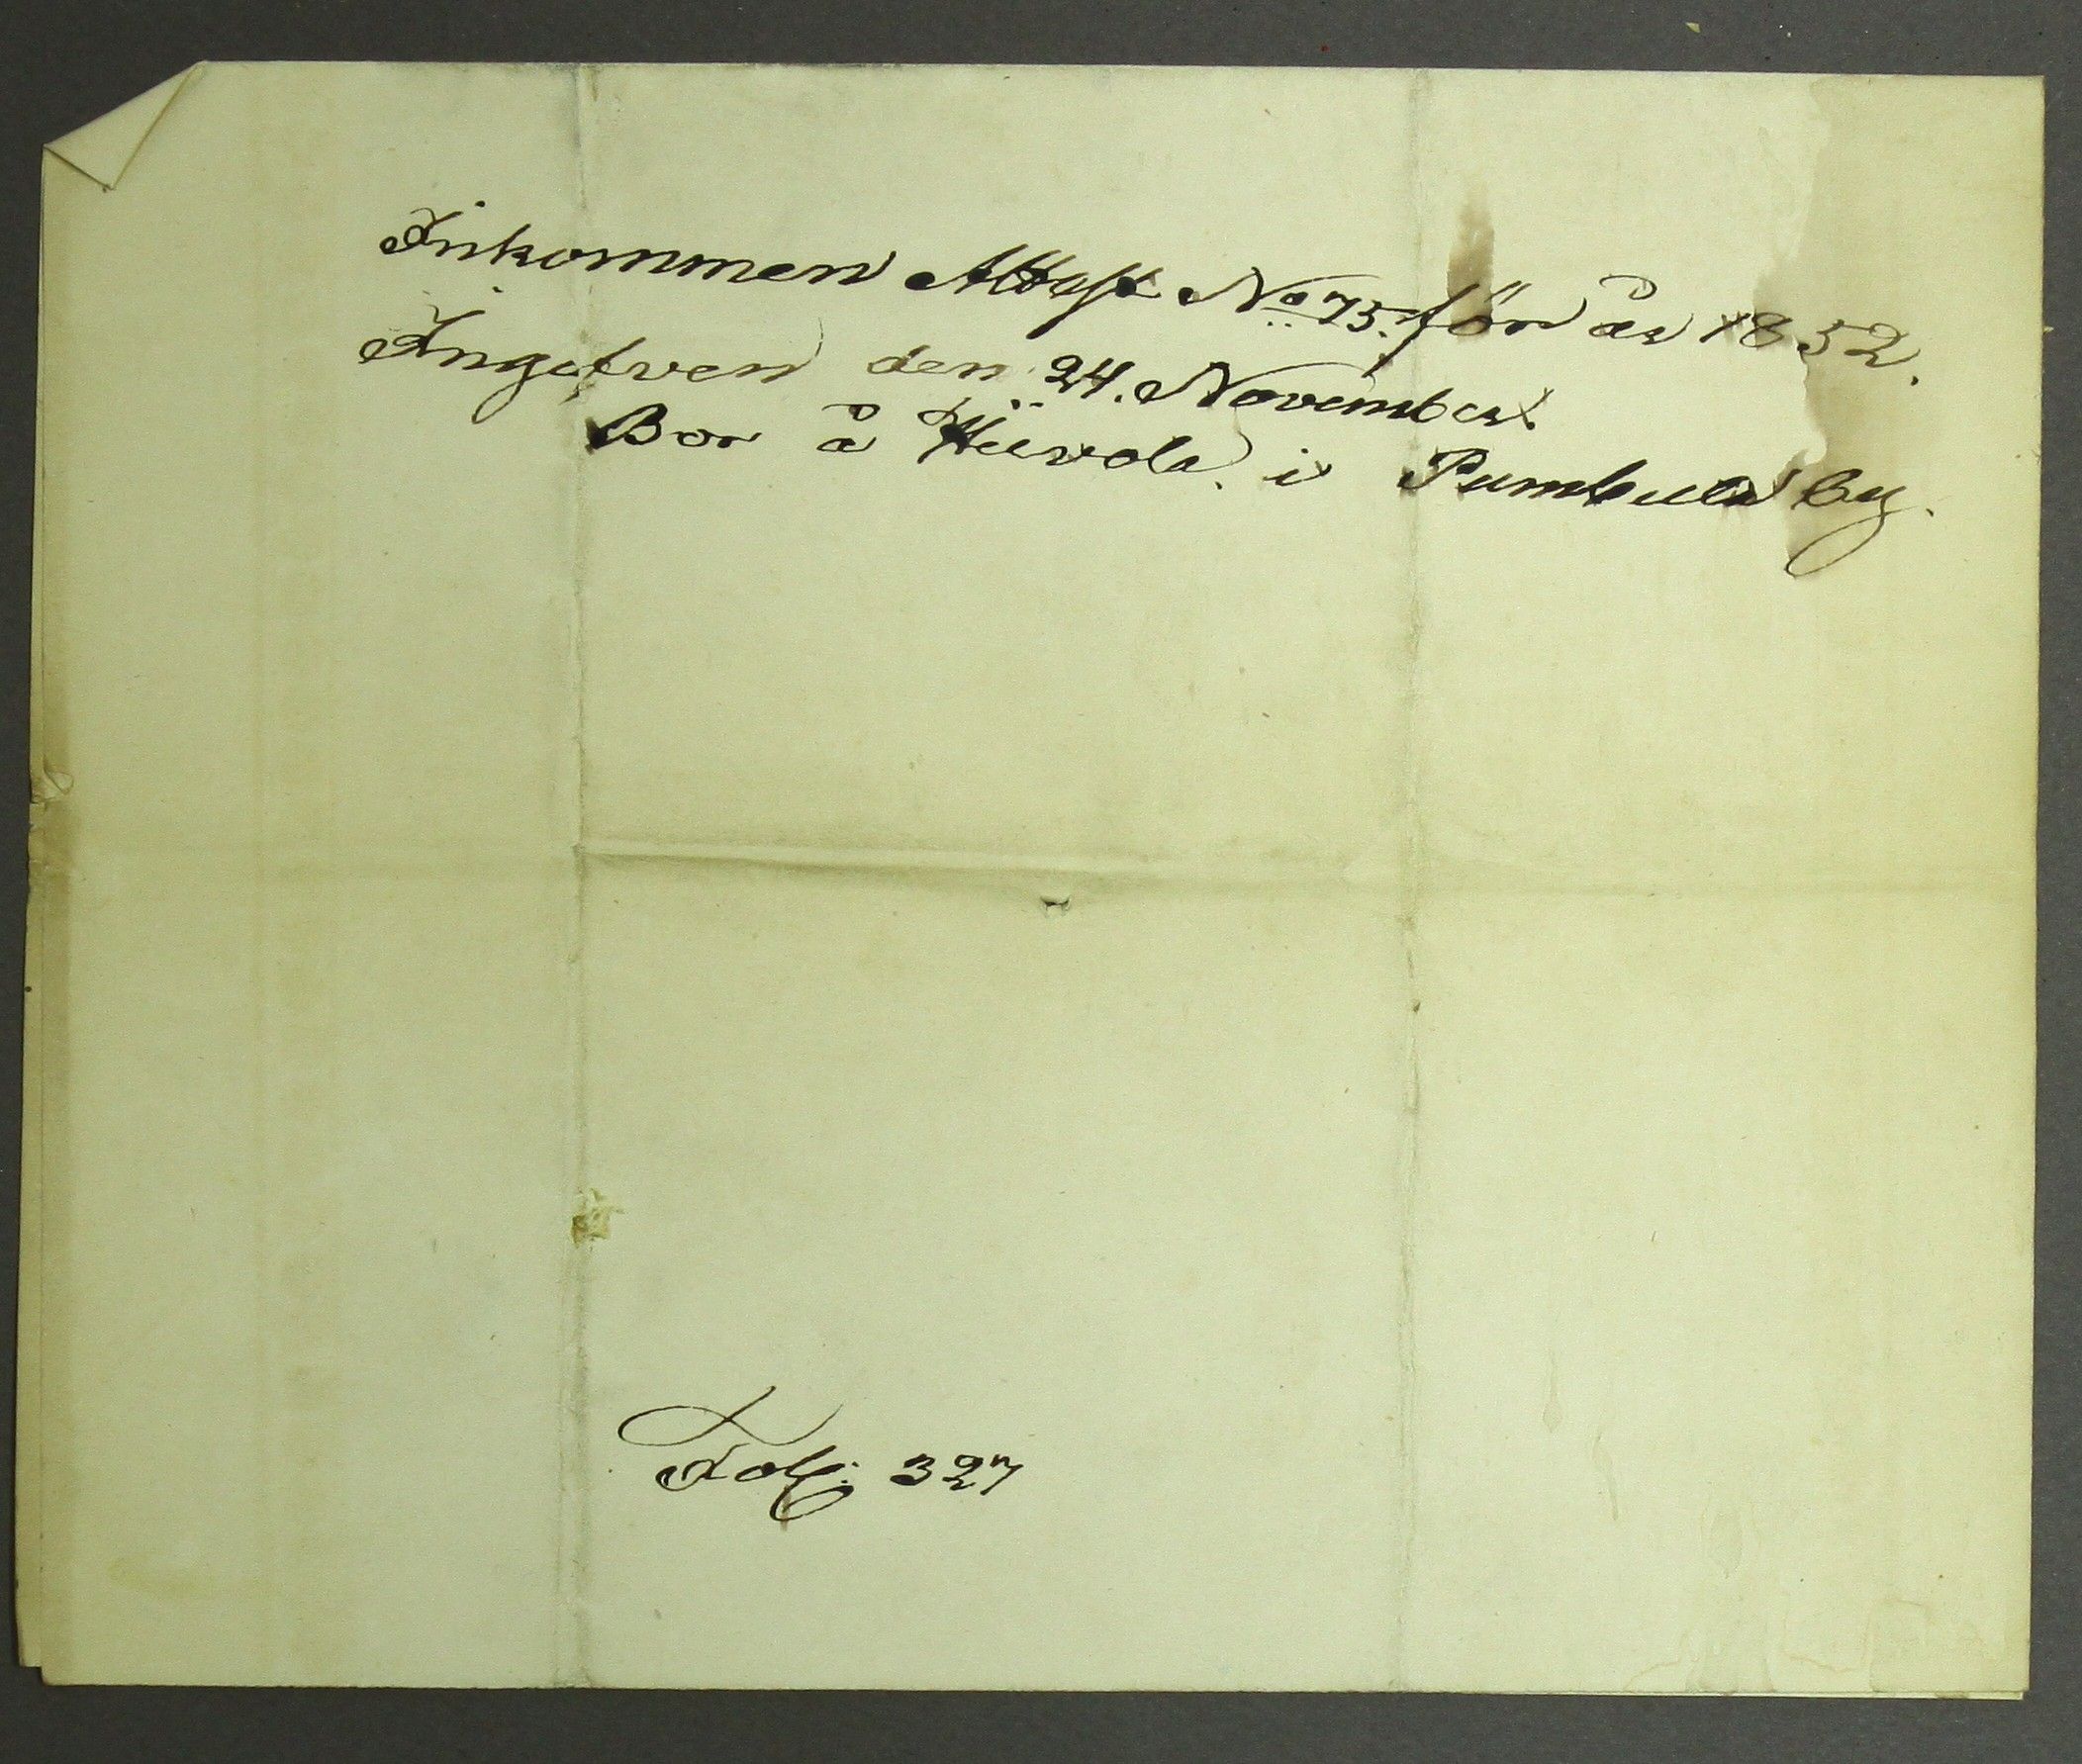 Inkommen Attest No 75. för år 1852.
Ingifven den 24. November.
Bor å i Pumbula by.
Fol: 327